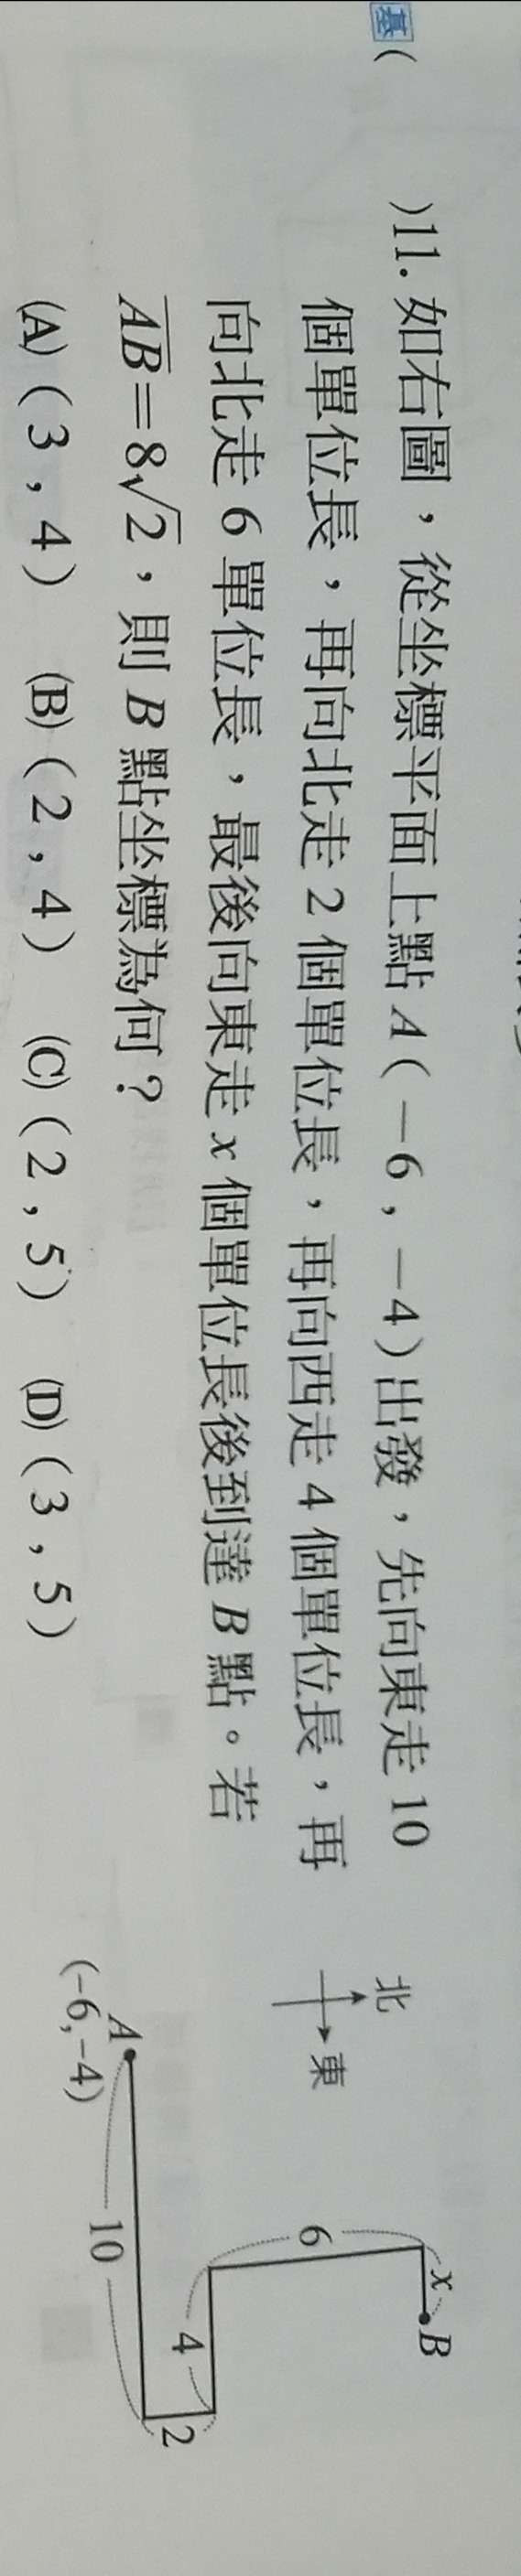 基 (    )11. 如右圖，從坐標平面上點 A(－6，－4)出發，先向東走 10
個單位長，再向北走 2 個單位長，再向西走 4 個單位長，再
向北走 6 單位長，最後向東走 x 個單位長後到達 B 點。若
AB＝8√2，則 B 點坐標為何？
(A)(3，4) (B)(2，4) (C)(2，5) (D)(3，5)
北
東
x
B
6
4
2
A
(－6,－4)
10